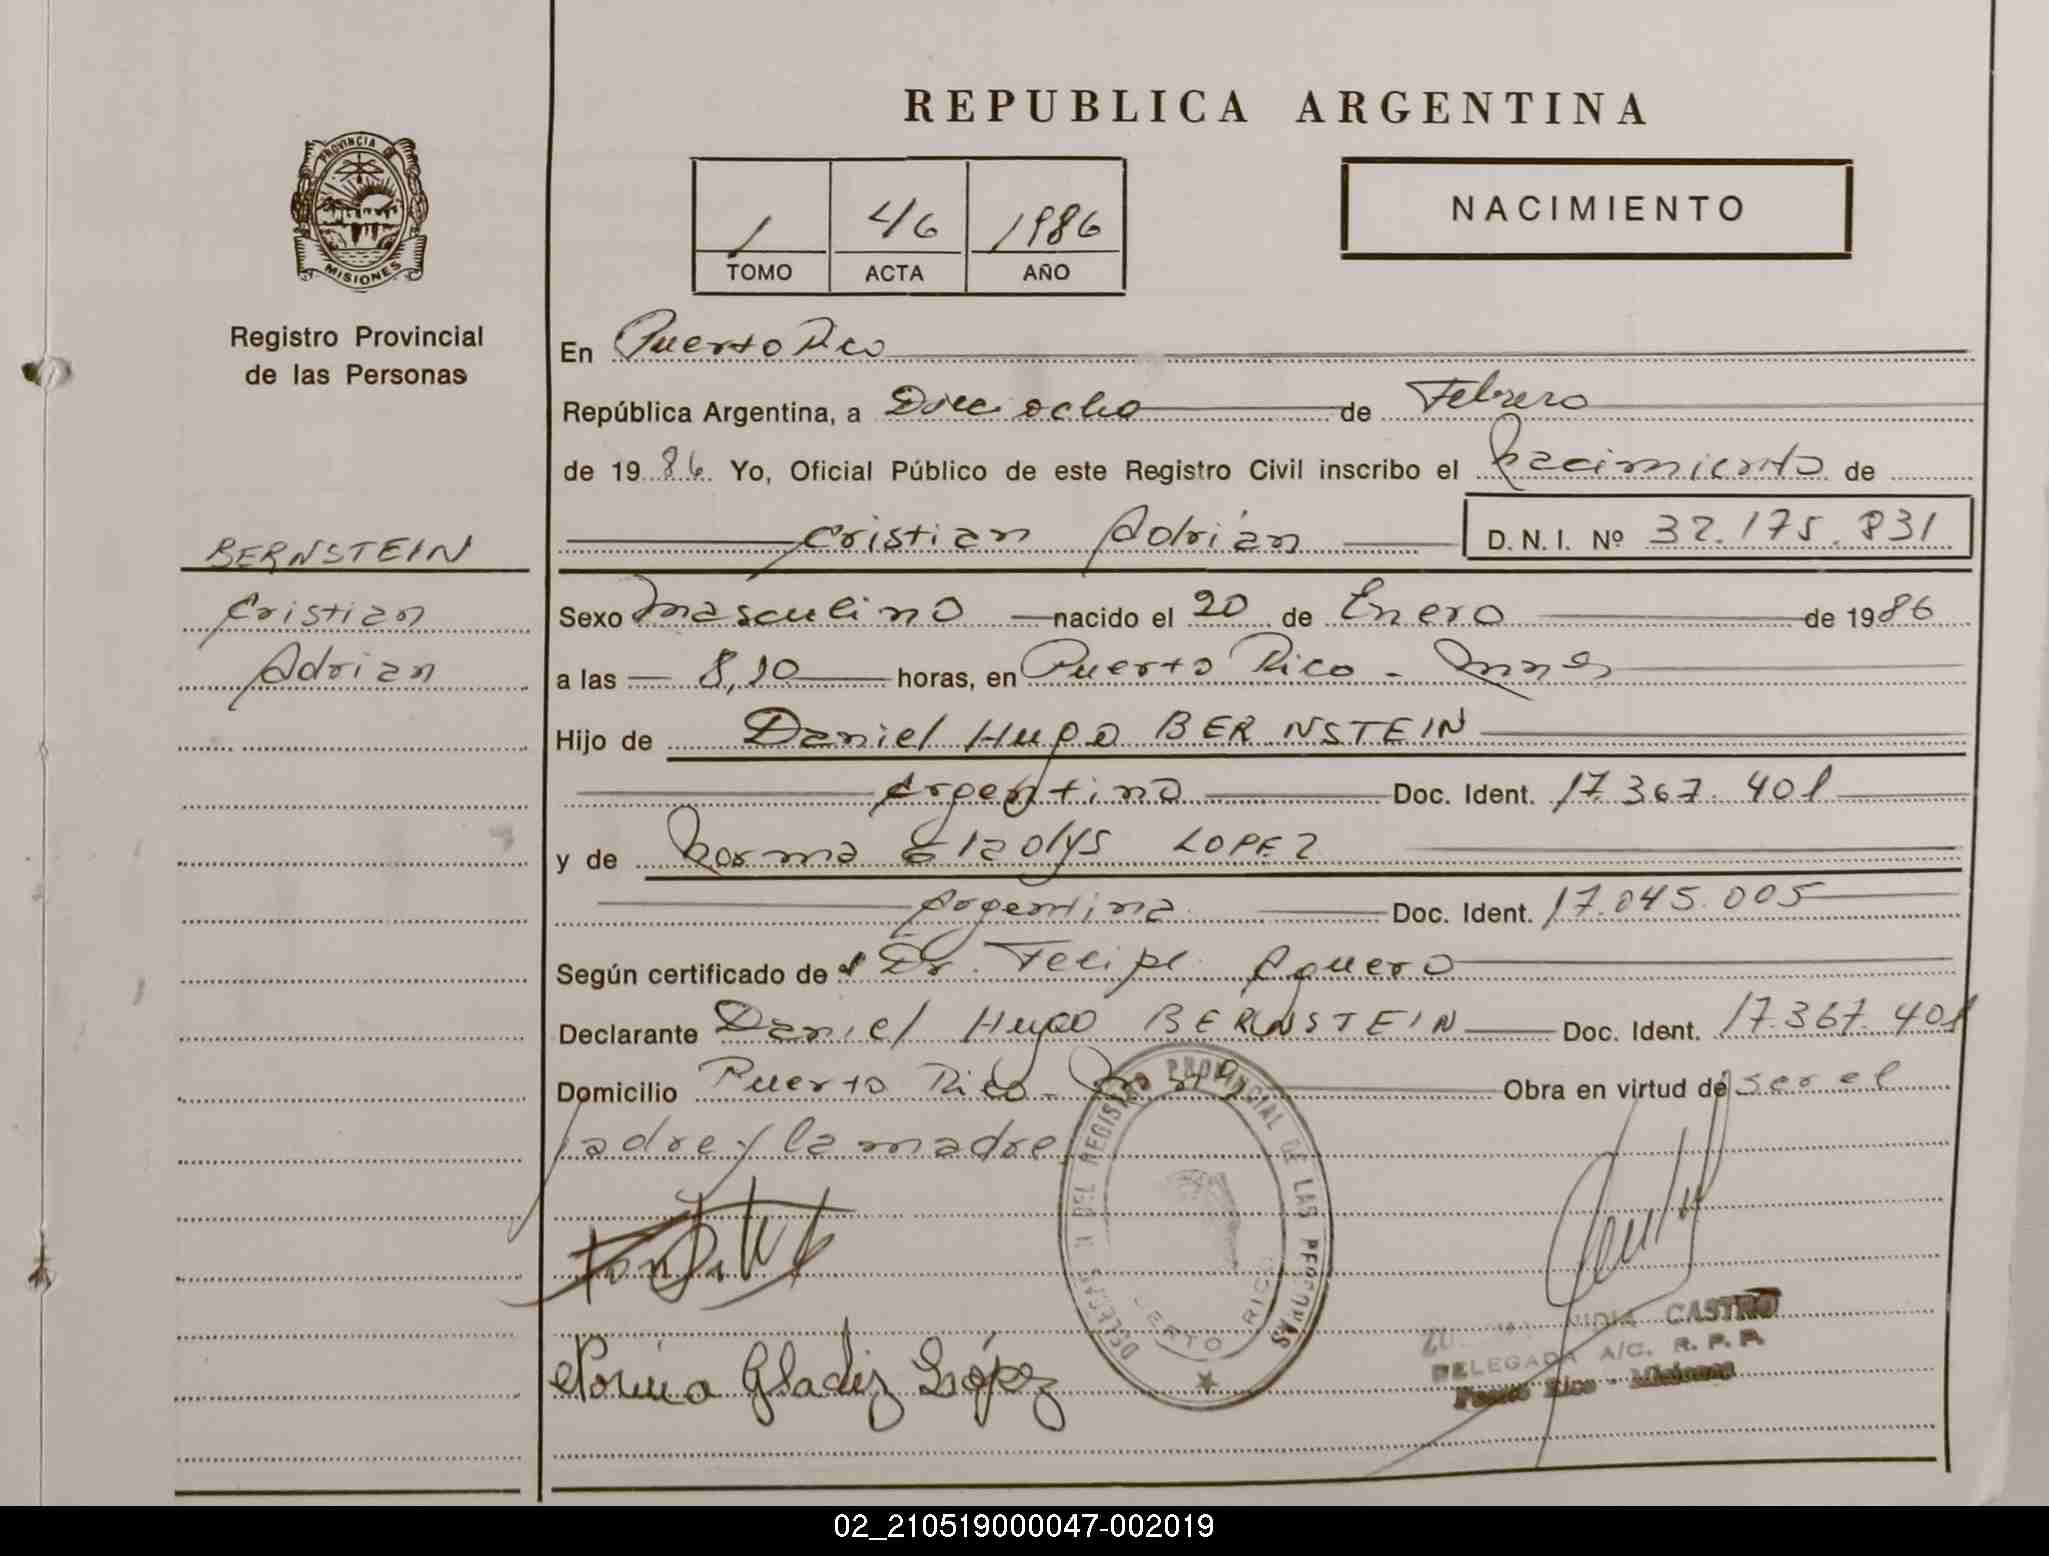 REPUBLICA ARGENTINA
PROVINCIA DE
MISIONES
Registro Provincial
de las Personas
1 46 1986
TOMO ACTA AÑO
NACIMIENTO
En Puerto Rico
República Argentina, a Dieciocho de Febrero
de 1986 Yo, Oficial Público de este Registro Civil inscribo el Nacimiento de
BERNSTEIN
Cristian
Adrian
Cristian Adrián D.N.I. Nº 32.175.831
Sexo Masculino nacido el 20 de Enero de 1986
a las 8,10 horas, en Puerto Rico - Mnes
Hijo de Daniel Hugo BERNSTEIN
Argentino Doc. Ident. 17.367.401
y de Norma Gladys LOPEZ
Argentina Doc. Ident. 17.045.005
Según certificado de Dr. Felipe Aguero
Declarante Daniel Hugo BERNSTEIN Doc. Ident. 17.367.401
Domicilio Puerto Rico - Mnes Obra en virtud de ser el
padre y la madre
DEL REGISTRO PROVINCIAL DE LAS PERSONAS
PUERTO RICO
CASTRO
DELEGADA A/C. R. P. P.
Puerto Rico - Misiones
Norma Gladiz López
02_210519000047-002019